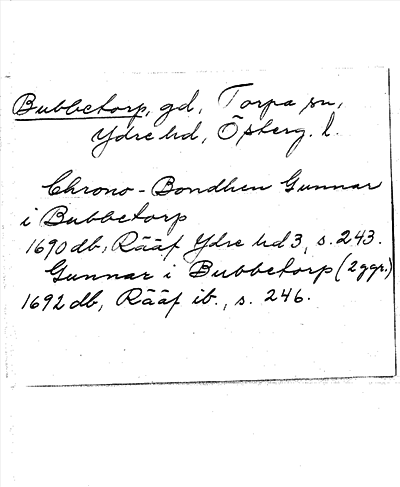 Bubbetorp, gd, Torpa sn,
Ydre hd, Österg. l.
Chrono-Bondhen Gunnar
i Bubbetorp
1690 db, Rääf Ydre hd 3, s. 243.
Gunnar i Bubbetorp (2 ggr.)
1692 db, Rääf ib., s. 246.